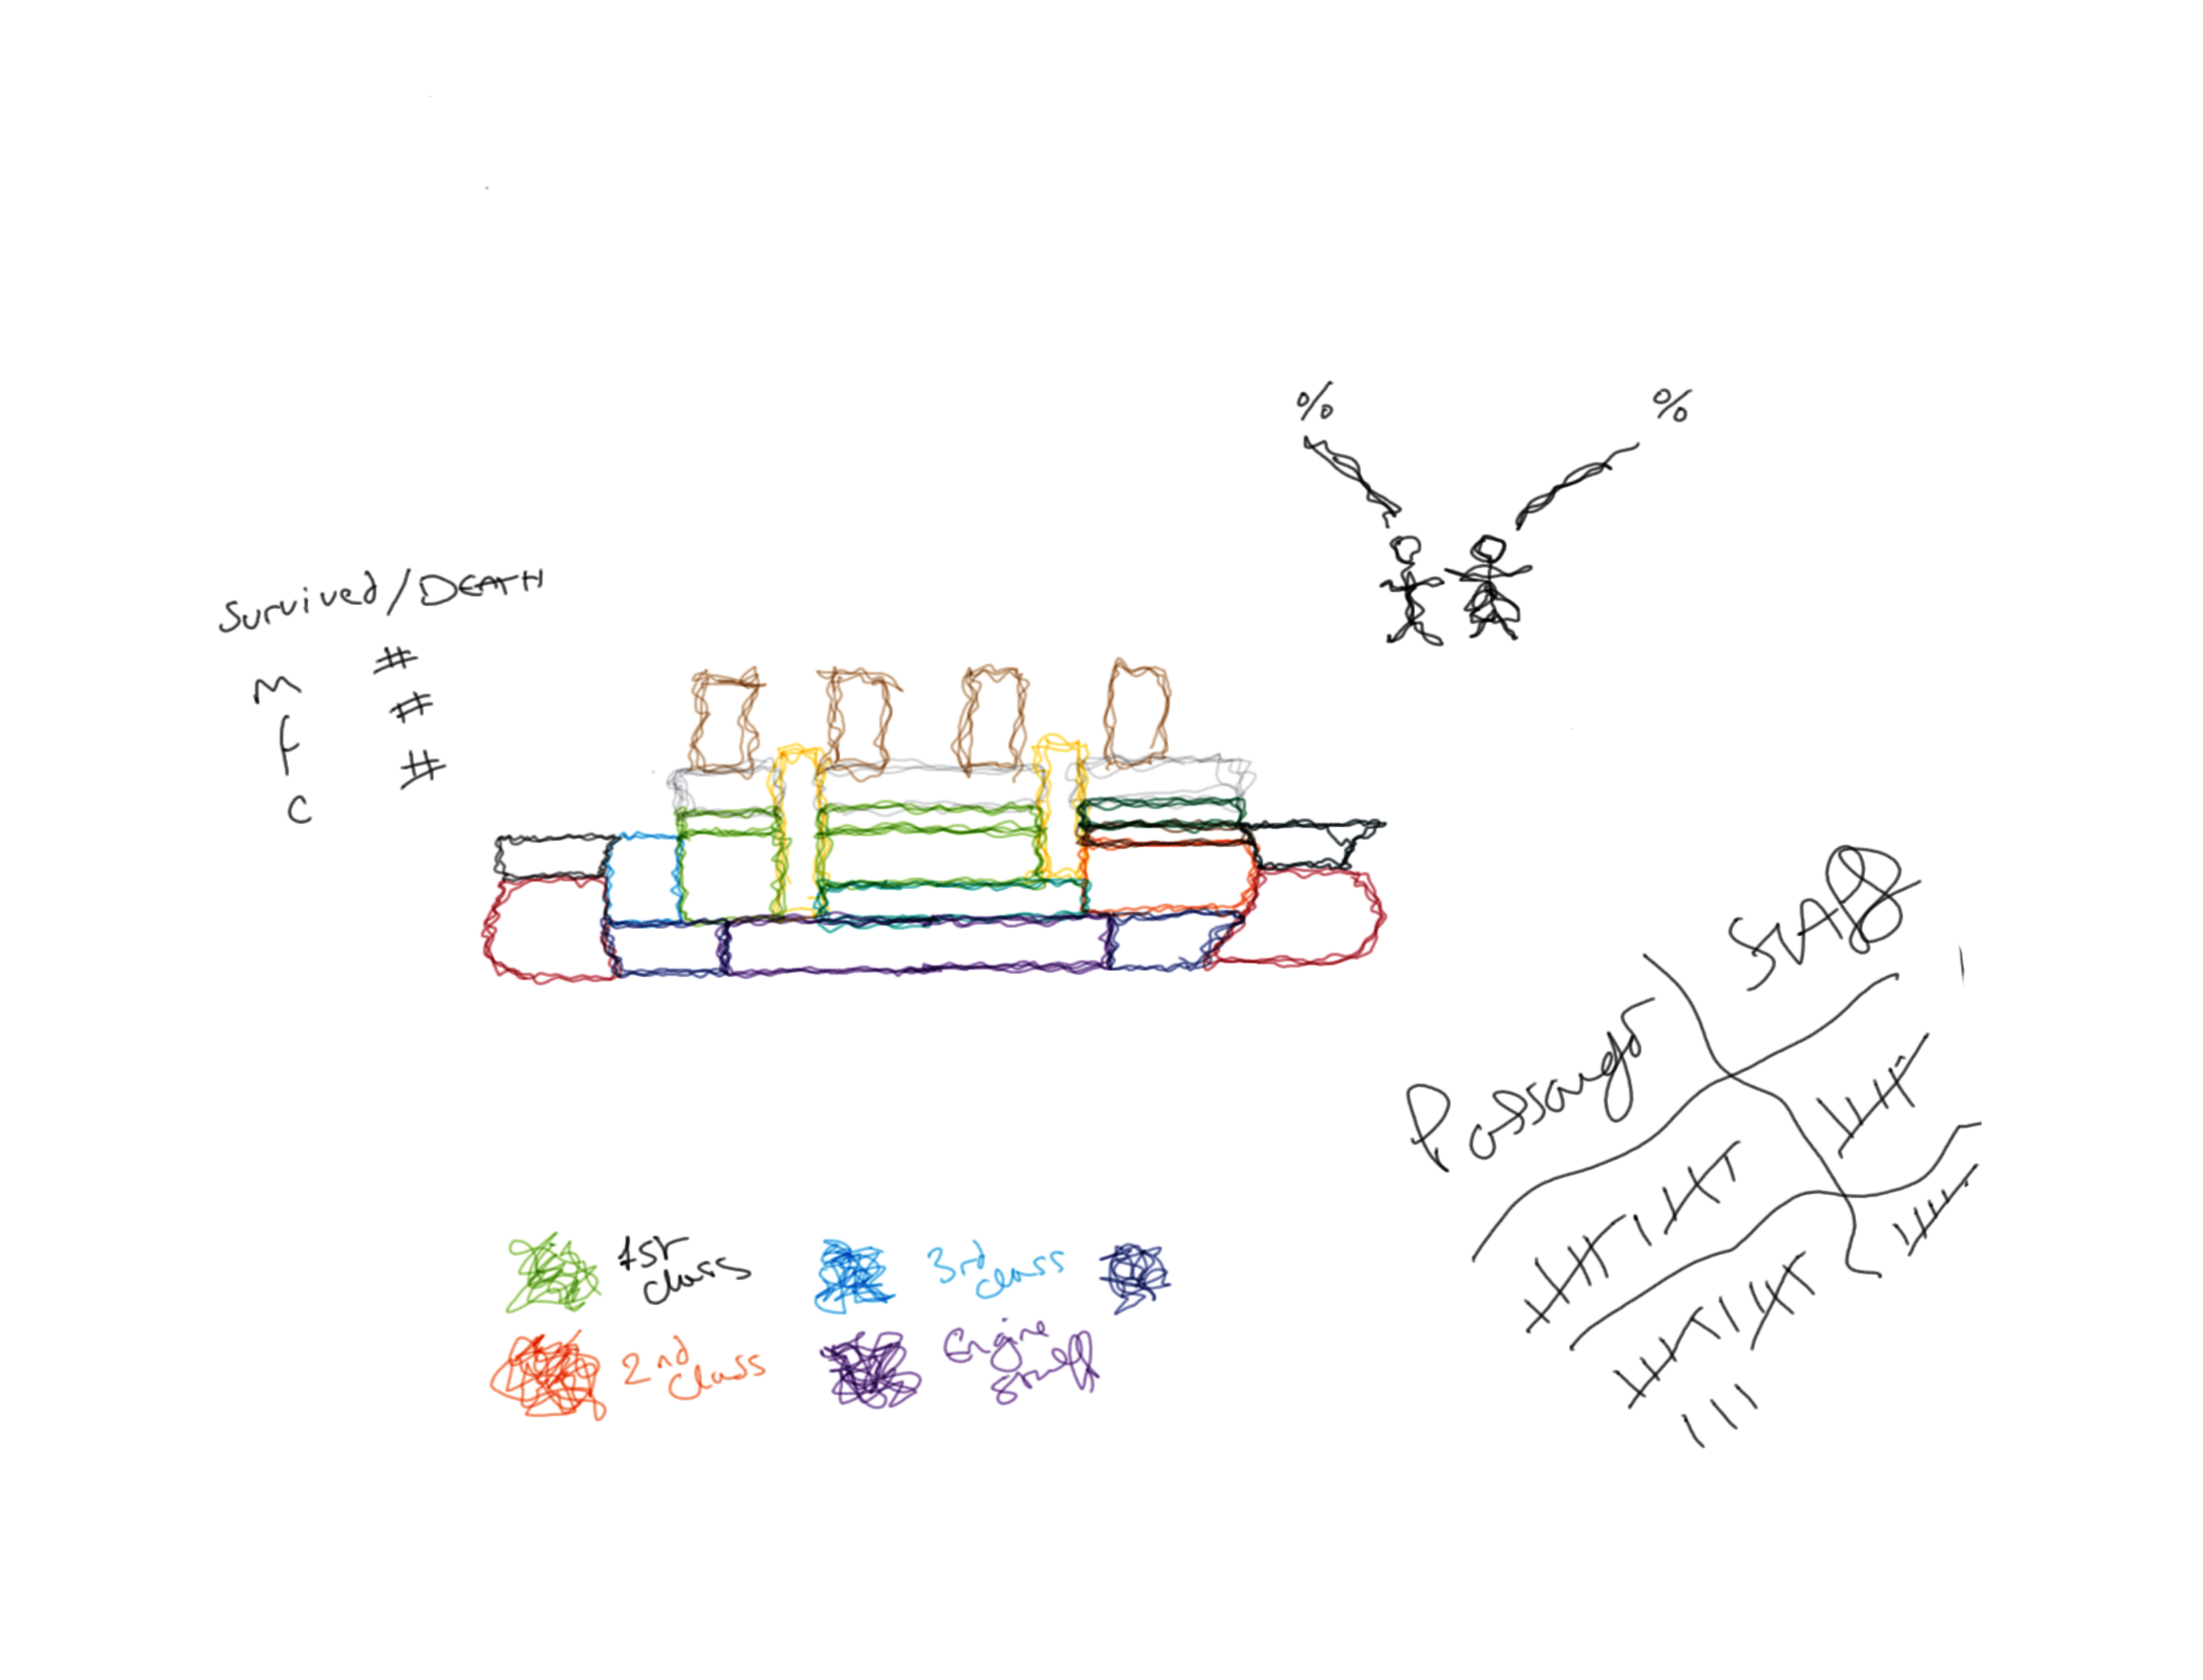 % %
Survived/DEATH
m #
f #
c #
Staff
Passanger
1st class
3rd class
2nd class
Engine stuff